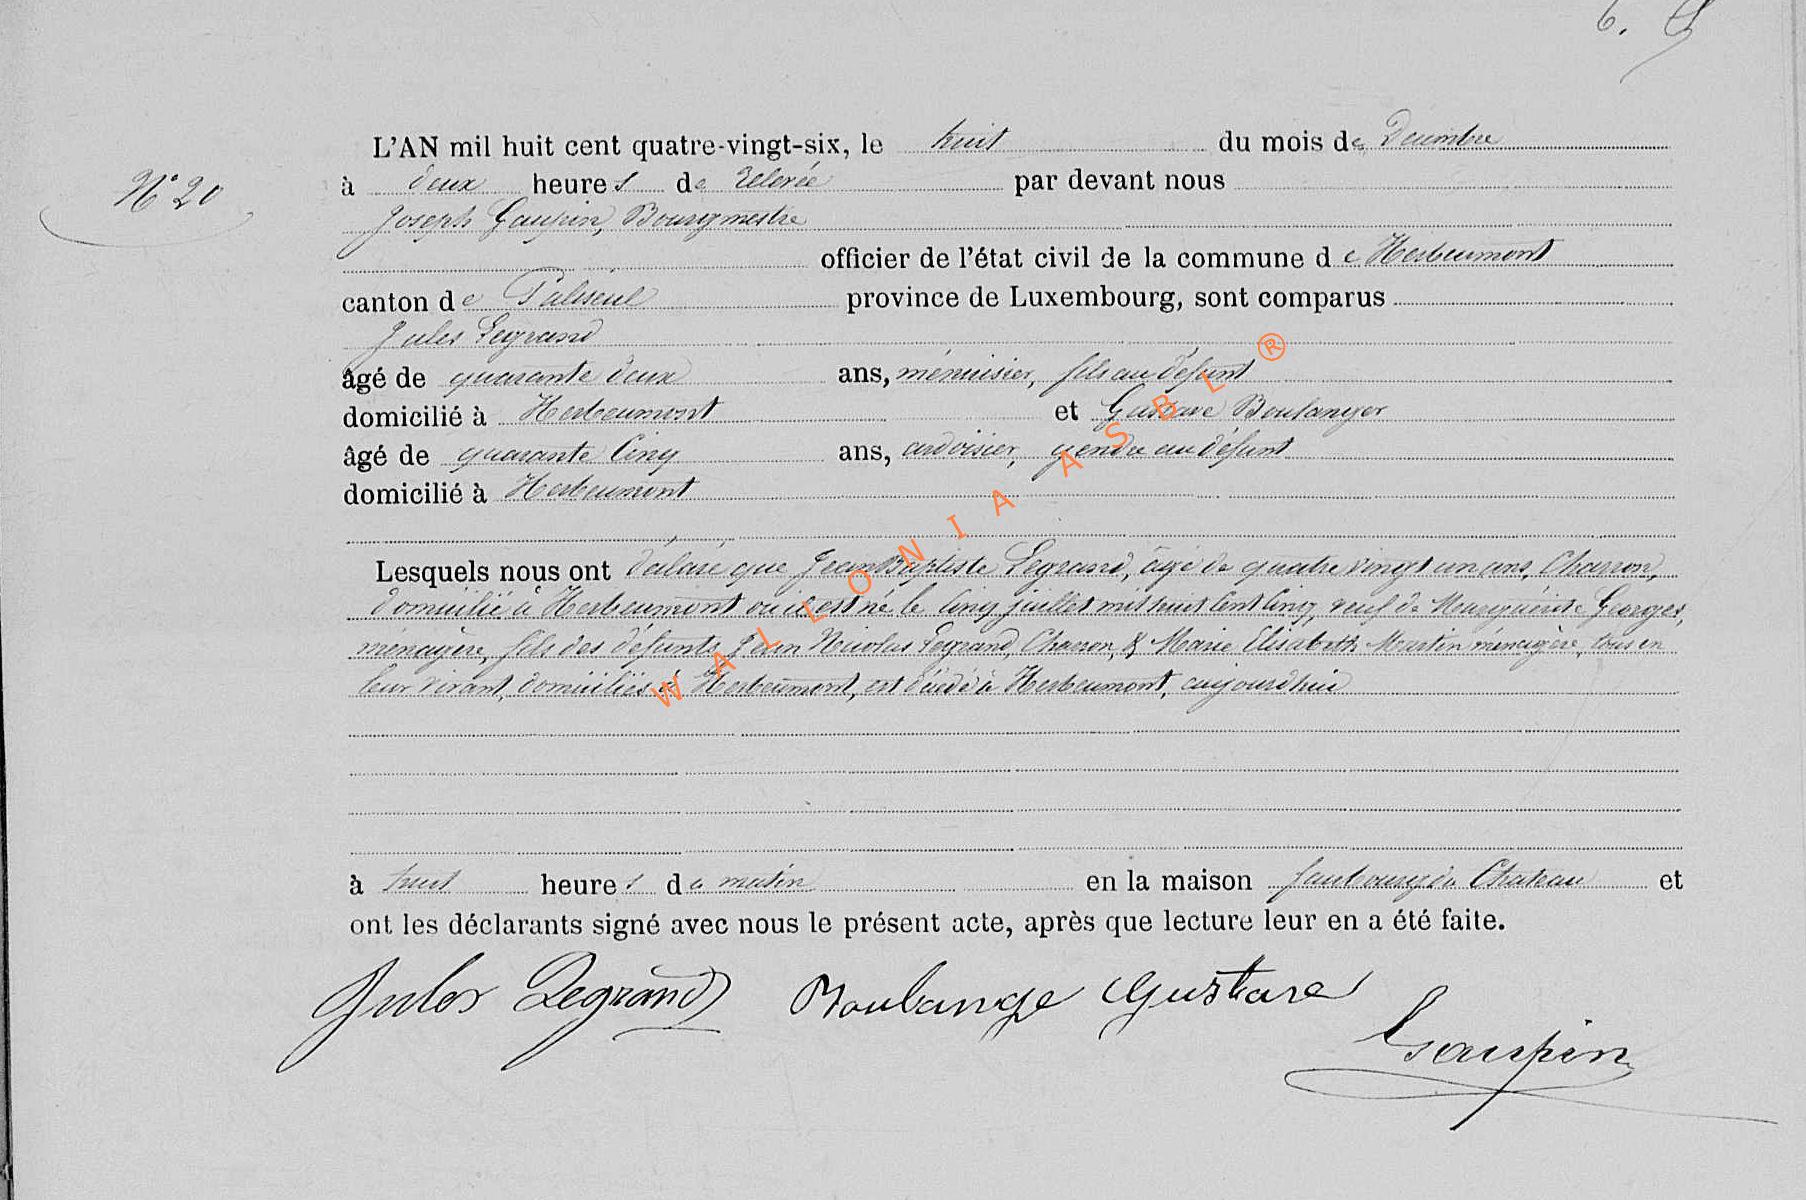 6.
L'AN mil huit cent quatre-vingt-six, le huit du mois de Decembre
N° 20
à deux heures de relevée par devant nous
Joseph Gaupin, Bourgmestre
officier de l'état civil de la commune de Herbeumont
canton de Paliseul province de Luxembourg, sont comparus
Jules Legrand
âgé de quarante deux ans, ménuisier, fils au défunt
domicilié à Herbeumont et Gustave Boulanger
âgé de quarante Cinq ans, ardoisier, gendre au défunt
domicilié à Herbeumont
Lesquels nous ont déclaré que Jean Baptiste Legrand, âgé de quatre vingt un ans, Charron,
domicilié à Herbeumont où il est né le cinq juillet mil huit cent cinq, veuf de Marguérite Georges,
ménagère, fils des défunts Jean Nicolas Legrand, Charron, & Marie Elisabeth Martin ménagère, tous en
leur vivant, domiciliés à Herbeumont, est décédé à Herbeumont, aujourd'hui
à huit heures du matin en la maison faubourg du Chateau et
ont les déclarants signé avec nous le présent acte, après que lecture leur en a été faite.
Jules Legrand Boulange Gustave
Gaupin
WALLONIA ASBL ®